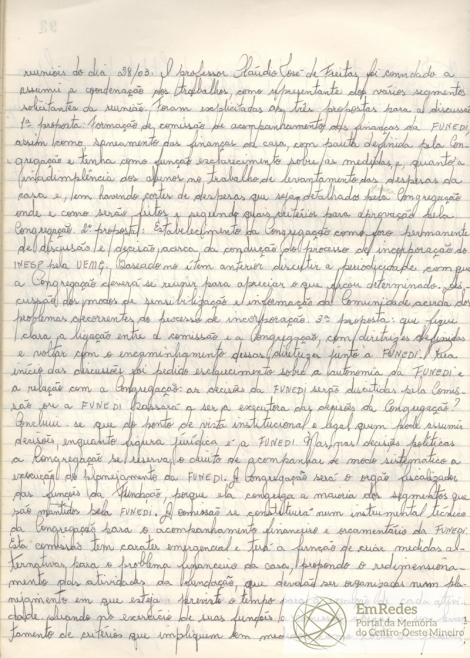 reuniões do dia 28/03. O professor Cláudio José de Freitas foi convidado a
assumir a coordenação dos trabalhos, como representante dos vários segmentos
solicitantes da reunião. Foram explicitadas as três propostas para a discussão
1ª proposta: Formação de comissão de acompanhamento das finanças da FUNEDI,
assim como saneamento das finanças da casa, com pauta definida pela Con-
gregação e tenha como função esclarecimento sobre as medidas e, quanto à
inadimplência dos alunos, no trabalho de levantamento das despesas da
casa e, em havendo cortes de despesas que seja detalhado pela Congregação
onde e como serão feitos e segundo quais critérios para aprovação pela
Congregação. 2ª proposta: Estabelecimento da Congregação como foro permanente
de discussão e decisão, acerca da condução do processo de incorporação do
INESP pela UEMG. Baseado no ítem anterior discutir a periodicidade com que
a Congregação deverá se reunir para apreciar o que ficou determinado, dis-
cussão dos modos de sensibilização e informação da Comunidade acerca dos
problemas decorrentes do processo de incorporação. 3ª proposta: que fique
clara a ligação entre a comissão e a Congregação, com diretrizes definidas
e votar com o encaminhamento dessas diretrizes junto à FUNEDI.
início das discussões foi pedido esclarecimento sobre a autonomia da FUNEDI e
a relação com a Congregação: as decisões da FUNEDI serão discutidas pela Comis-
são ou a FUNEDI passará a ser a executora das decisões da Congregação?
Concluiu-se que do ponto de vista institucional e legal quem pode assumir
decisões enquanto figura jurídica é a FUNEDI. Mas nas decisões políticas
a Congregação se reserva o direito de acompanhar de modo sistemático a
execução do planejamento da FUNEDI. A Congregação será o órgão fiscalizador
das funções da Fundação, porque ela congrega a maioria dos segmentos que
são mantidos pela FUNEDI. A comissão se constituirá num instrumental técnico
da Congregação para o acompanhamento financeiro e orçamentário da FUNEDI.
Esta comissão tem caráter emergencial e terá a função de criar medidas al-
ternativas para o problema financeiro da casa, propondo o redimensiona-
mento das atividades da Fundação, que deverão ser organizadas num pla-
nejamento em que esteja previsto o tempo para de cada ativi-
dade quando no exercício de suas funções
tamento de critérios que impliquem em
EmRedes
Portal da Memória
do Centro-Oeste Mineiro